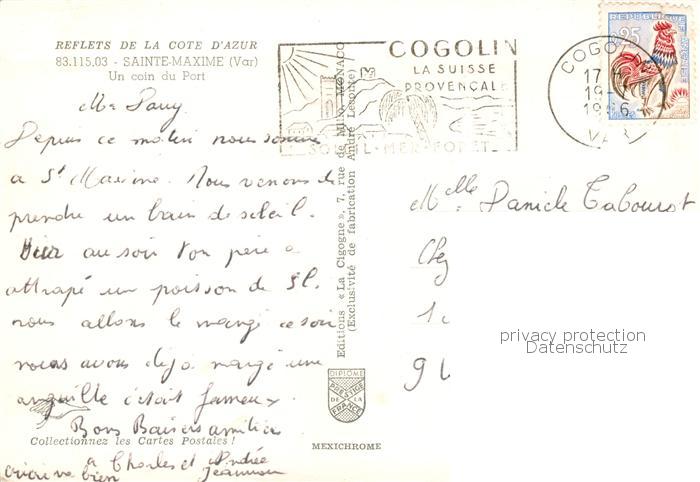 REFLETS DE LA COTE D'AZUR
83.115.03 - SAINTE-MAXIME (Var)
Un coin du Port
Depuis ce matin nous sommes
a St Maxime. Nous venons de
prendre un bain de soleil.
Hier au soir ton père a
attrapé un poisson de
nous allons le mangé ce soir
nous avons déjà mangé une
anguille c'était fameux
Bons Baisers amitiés
a Charles et Andrée
bien
Collectionnez les Cartes Postales !
Editions « La Cigogne », 7, rue de Millo, MONACO
(Exclusivité de fabrication André Leconte)
DIPLOME
PRESTIGE
DE LA
FRANCE
MEXICHROME
COGOLIN
LA SUISSE
PROVENÇALE
SOLEIL-MER-FORET
COGOLIN
17 H
19-
VAR
REPUBLIQUE FRANÇAISE
0,25
Melle Danièle Tabourot
Chez
privacy protection
Datenschutz